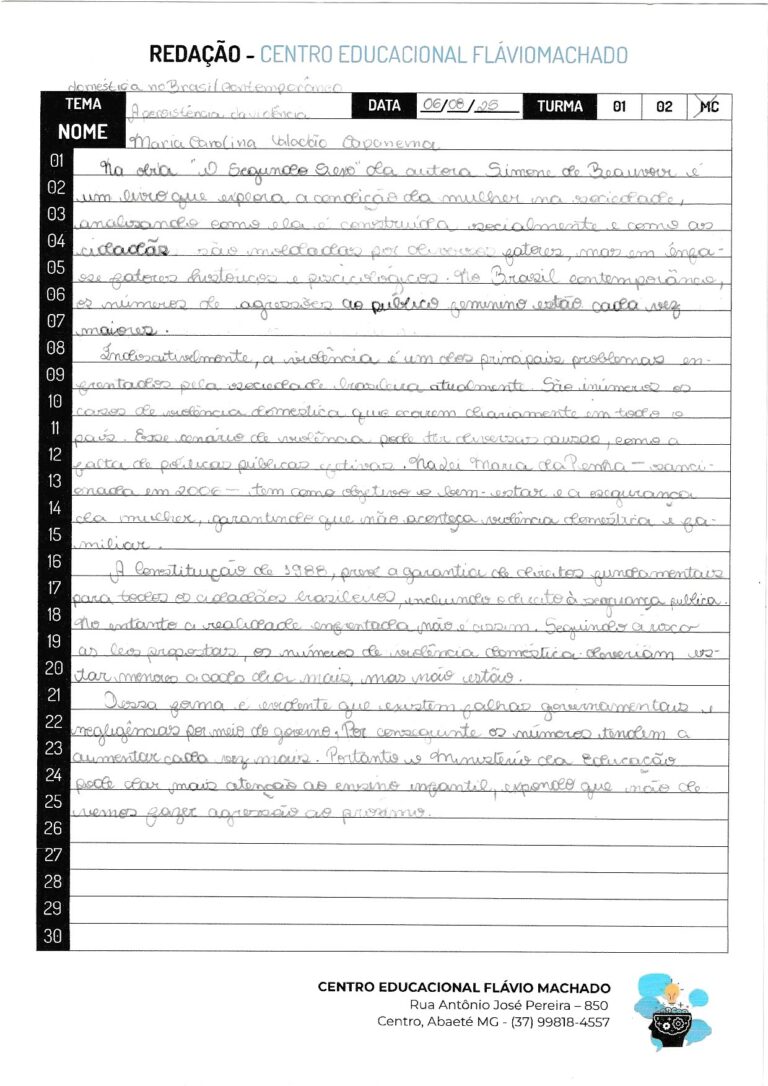 REDAÇÃO - CENTRO EDUCACIONAL FLÁVIOMACHADO
doméstica no Brasil Contemporâneo
TEMA A persistência da violência DATA 06/08/25 TURMA 01 02 MC
NOME Maria Carolina Valadão Capanema
01 Na obra "O Segundo Sexo" da autora Simone de Beauvoir é
02 um livro que explora a condição da mulher na sociedade,
03 analisando como ela é construída socialmente e como as
04 cidadãs são moldadas por diversos fatores, mas em ênfa-
05 se fatores históricos e piscicológicos. No Brasil contemporâneo,
06 os números de agressões ao público feminino estão cada vez
07 maiores.
08 Indiscutivelmente, a violência é um dos principais problemas en-
09 frentados pela sociedade brasileira atualmente. São inúmeros os
10 casos de violência domestica que ocorrem diariamente em todo o
11 país. Esse cenário de violência pode ter diversas causas, como a
12 falta de políticas públicas efetivas. Na Lei Maria da Penha – sanci-
13 onada em 2006 – tem como objetivo o bem-estar e a segurança
14 da mulher, garantindo que não aconteça violência doméstica e fa-
15 miliar.
16 A Constituição de 1988, prevê a garantia de direitos fundamentais
17 para todos os cidadãos brasileiros, incluindo o direito à segurança pública.
18 No entanto a realidade enfrentada não é assim. Seguindo à risca
19 as leis propostas, os números de violência doméstica deveriam es-
20 tar menores a cada dia mais, mas não estão.
21 Dessa forma é evidente que existem falhas governamentais e
22 negligências por meio do governo. Por conseguinte os números tendem a
23 aumentar cada vez mais. Portanto o Ministério da Educação
24 pode dar mais atenção ao ensino infantil, expondo que não de
25 vemos fazer agressão ao próximo.
26
27
28
29
30
CENTRO EDUCACIONAL FLÁVIO MACHADO
Rua Antônio José Pereira – 850
Centro, Abaeté MG - (37) 99818-4557